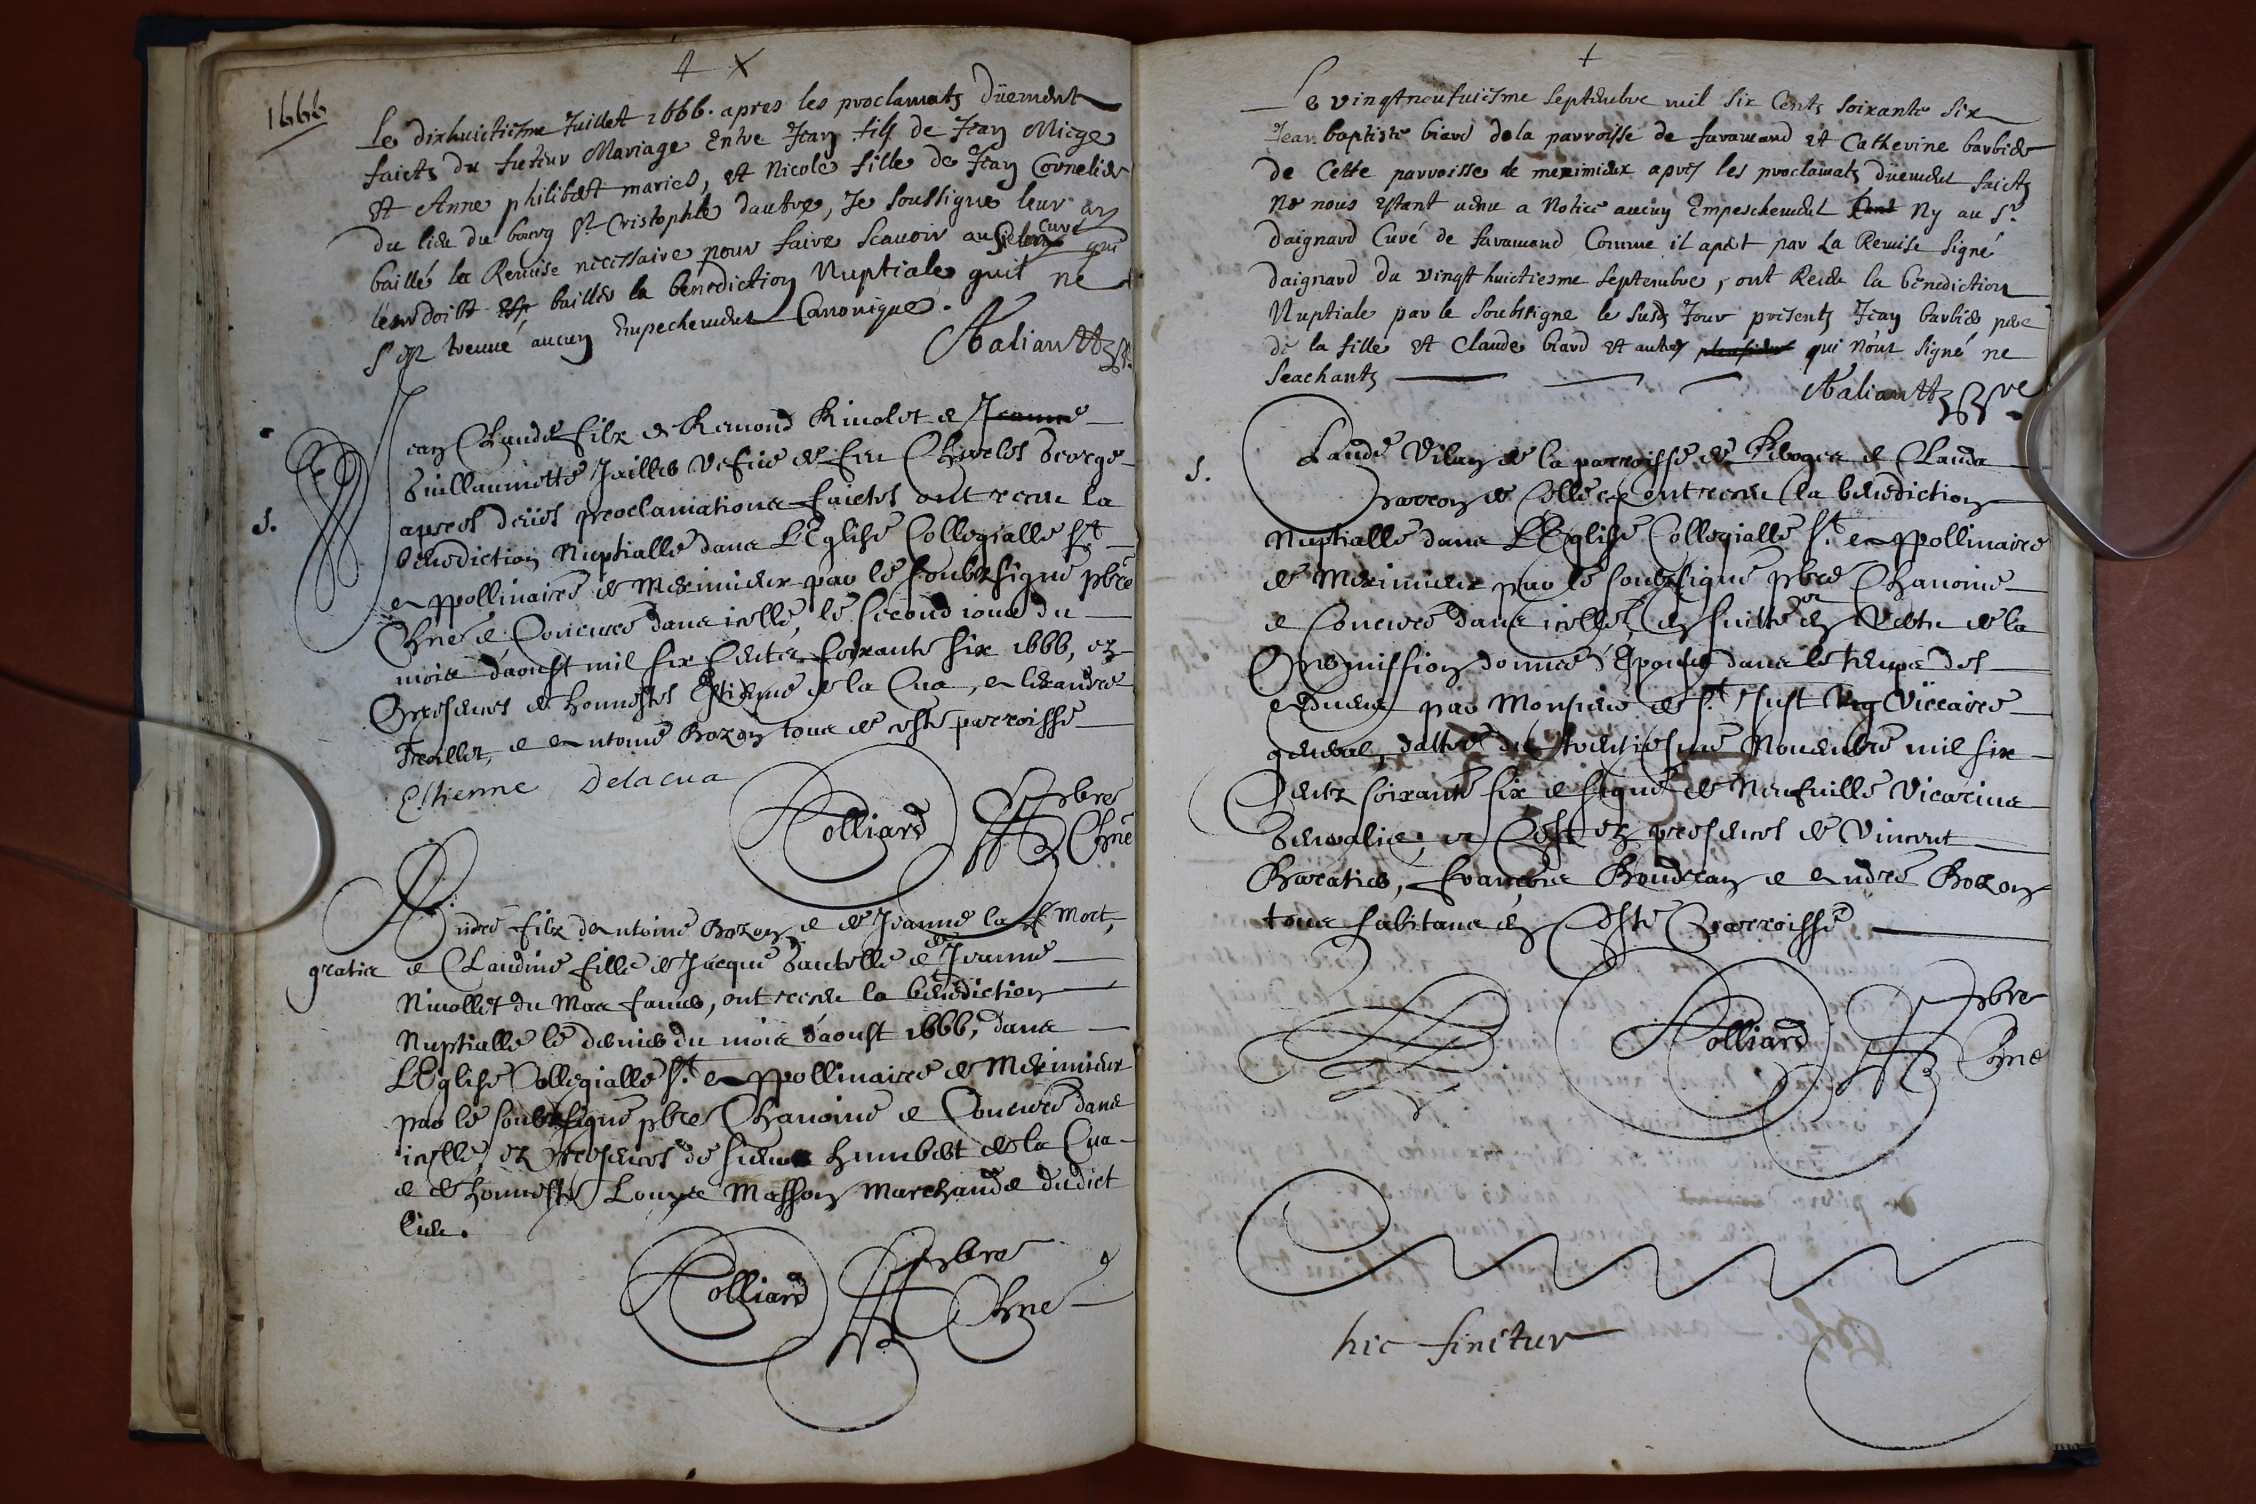 1666
Le dixhuictiesme Juillet 1666. apres les proclamats düement
faicts du futeur Mariage Entre Jean fils de Jean Miege
et Anne philibert mariés, et Nicole fille de Jean Cornelier
du lieu du bourg St Cristophle dautre, Je soussigne leur ay
baillé la Remise necessaire pour faire scavoir au Sieur Curé qui
leur doibt bailler la benediction Nuptiale quil ne
sest treuué aucun Empechement Canonique.
Jean Claude filz de Remond Rivolet & Jeanne
Guillaumette Jailler vefue de feu Charles George
apres deües proclamations faictes ont receu la
benediction Nuptialle dans LEglise Collegialle St
Appollinaire de Meximieux par le soubzsigné pbre
Chne & Concuré dans icelle, le second iour du
mois daoust mil six centz soixante six 1666, ez
presences de honnestes Estienne de la Cua, Alexandre
Trollet, & Antoine Bozon tous de ceste parroisse
Estienne Delacua
Rolliard pbre
Chne
S.
Andre filz dAntoine Bozon & de Jeanne la Mort,
gratis & Claudine fille de Jacque Gautelle & de Jeanne
Nivollet du Mas farier, ont receu la benediction
Nuptialle le dernier du mois daoust 1666, dans
LEglise Collegialle St Appollinaire de Meximieux
par le soubzsigné pbre Chanoine & Concuré dans
icelle, ez presences de sieur humbert de la Cua
& de honneste Louys Masson Marchands dudict
lieu.
Rolliard pbre
Chne
Le vingtneufuiesme septembre mil six Cents soixante six
Jean baptiste biard de la parroisse de faramand et Catherine barbier
de Cette parroisse de meximieux apres les proclamats düement faicts
Ne nous estant venu a Notice aucun Empeschement Ny au Sr
daignard Curé de faramand Comme il apert par La Remise signé
daignard du vingt huictiesme septembre, ont Receu la benediction
Nuptiale par le soubsigne le susd Jour presents Jean barbier pere
de la fille et Claude biard et autres qui n'ont signé ne
seachants
S.
Claude Vilan de la parroisse de Riboges & Clauda
Charron de Colleex ont receu la benediction
Nuptialle dans LEglise Collegialle St Appollinaire
de Meximieux par le soubzsigné pbre Chanoine
& Concuré dans icelle, en suitte & en vertu de la
permission donnée despouser dans le temps des
Aduents par Monsieur de St Just Viccaire
general, dattée du Novembre mil six
centz soixante six & signé de Neufuille Vicarius
Generalis, et Cest ez presences de Vincent
Baratier, françois Boudran & Andre Bozon
tous habitans en Ceste Parroisse
Rolliard pbre
Chne
hic finitur